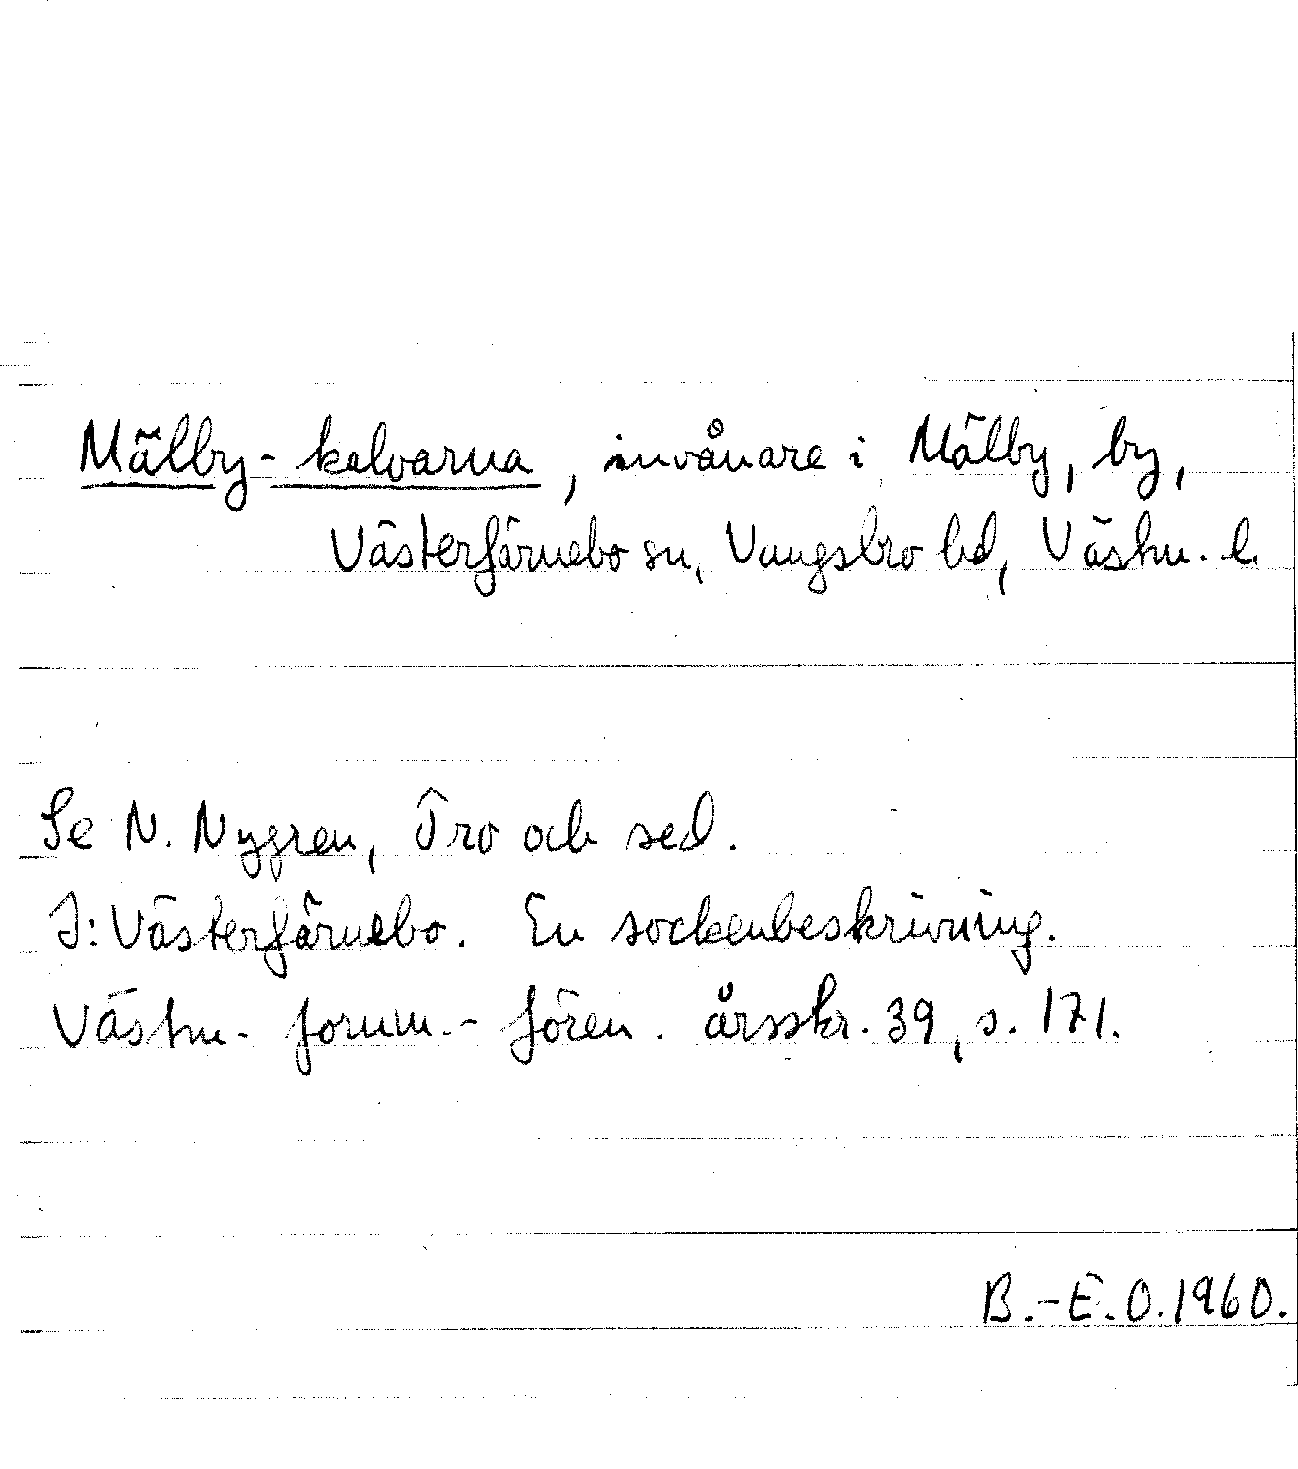 Mälby-kalvarna, invånare i Mälby, by,
Västerfärnebo sn, Vangsbro hd, Västm. l.
Se N. Nygren, Tro och sed.
I: Västerfärnebo. En sockenbeskrivning.
Västm. fornm.-fören. årsskr. 39, s. 171.
B.-E.O. 1960.